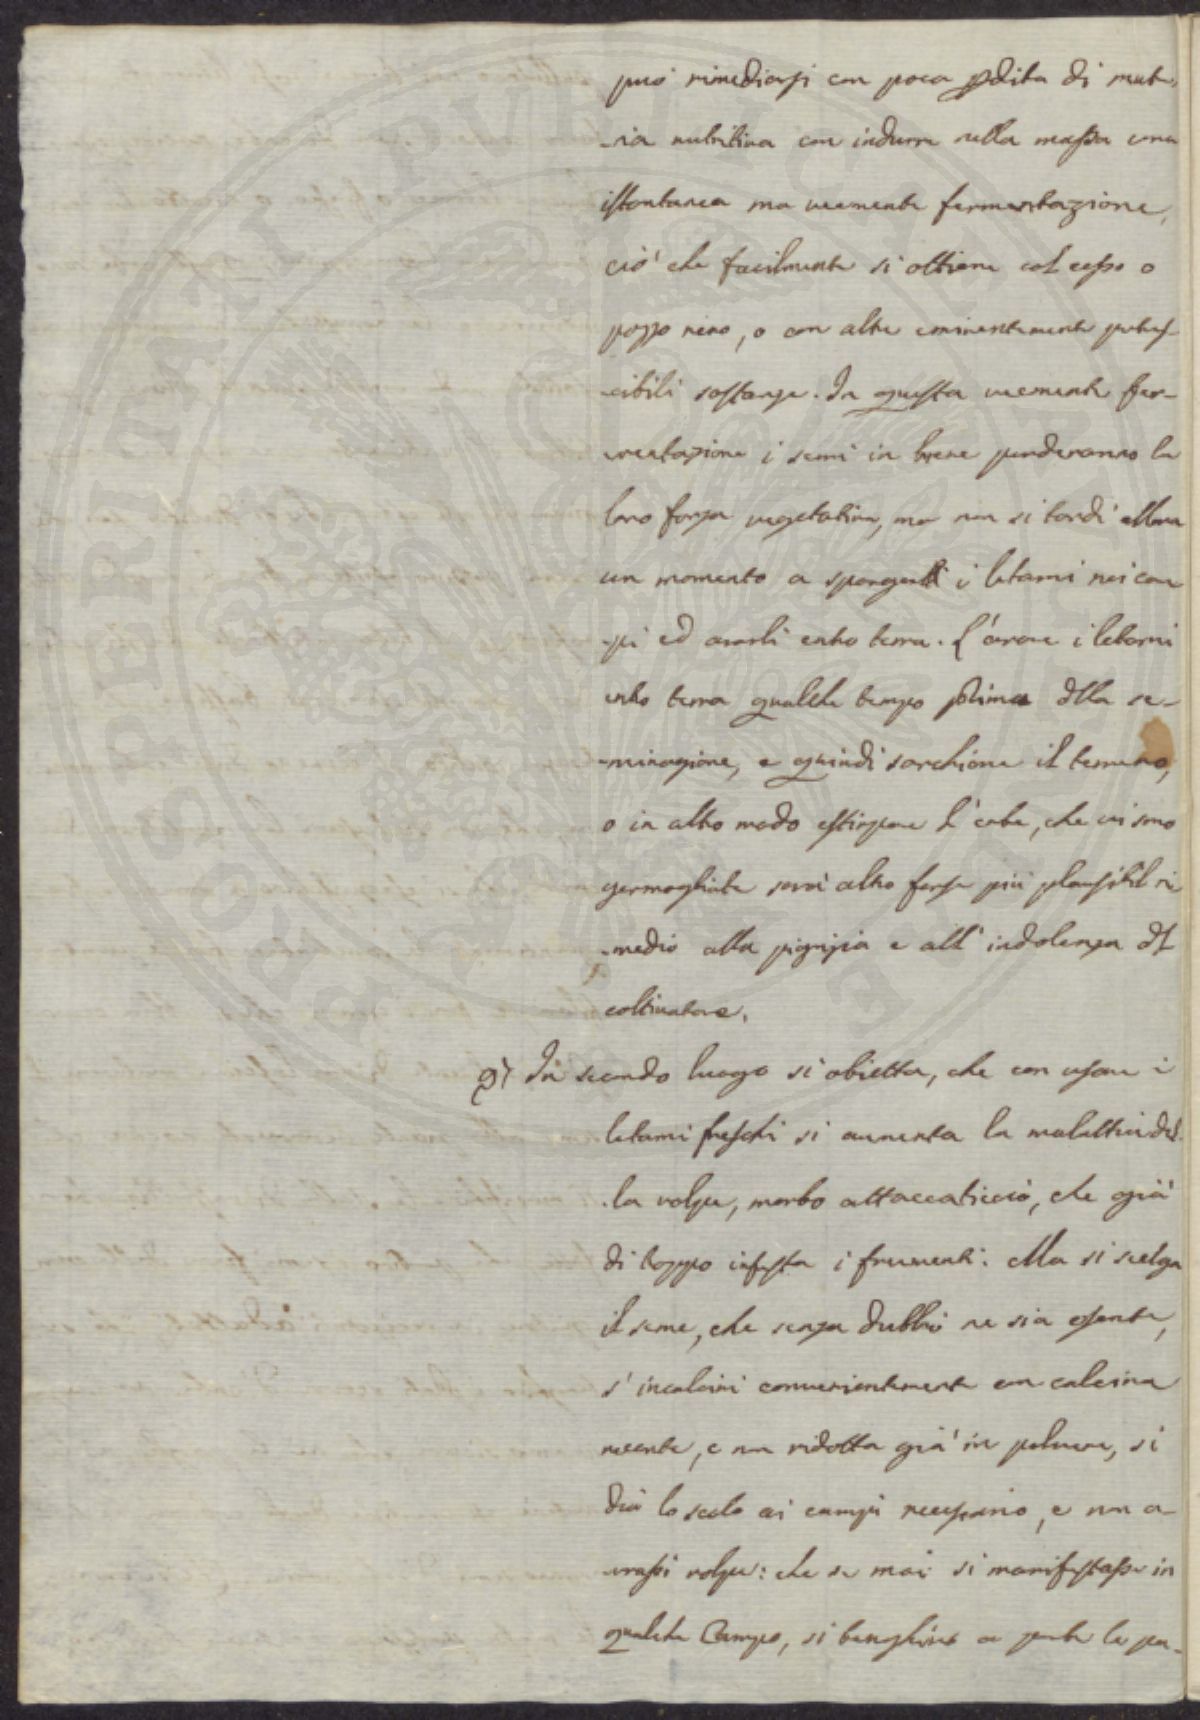 può rimediarsi con poca pdita di mate-
-ria nutritiva con indurre nella massa una
istantanea ma veemente fermentazione,
ciò che facilmente si ottiene col cesso o
pozzo nero, o con altre eminentemente putres-
-cibili sostanze. In questa veemente fer-
-mentazione i semi in breve perderanno la
loro forza vegetativa, ma non si tardi allora
un momento a spargere i letami nei cam
-pi ed ararli entro terra. L'arare i letami
entro terra qualche tempo prima dlla se-
-minagione, e quindi sarchiare il terreno,
o in altro modo estirpare l'erbe, che vi sono
germogliate sarà altro forse più plausibil ri
-medio alla pigrizia e all'indolenza dl
coltivatore.
2) In secondo luogo si obietta, che con usare i
letami freschi si aumenta la malattia del
-la volpe, morbo attaccaticcio, che già
di troppo infesta i frumenti: Ma si scelga
il seme, che senza dubbio ne sia esente,
s'incalcini convenientemente con calcina
recente, e non ridotta già in polvere, si
dia lo scolo ai campi necessario, e non a-
-vrassi volpe: che se mai si manifestasse in
qualche Campo, si tenghino a parte le pa-